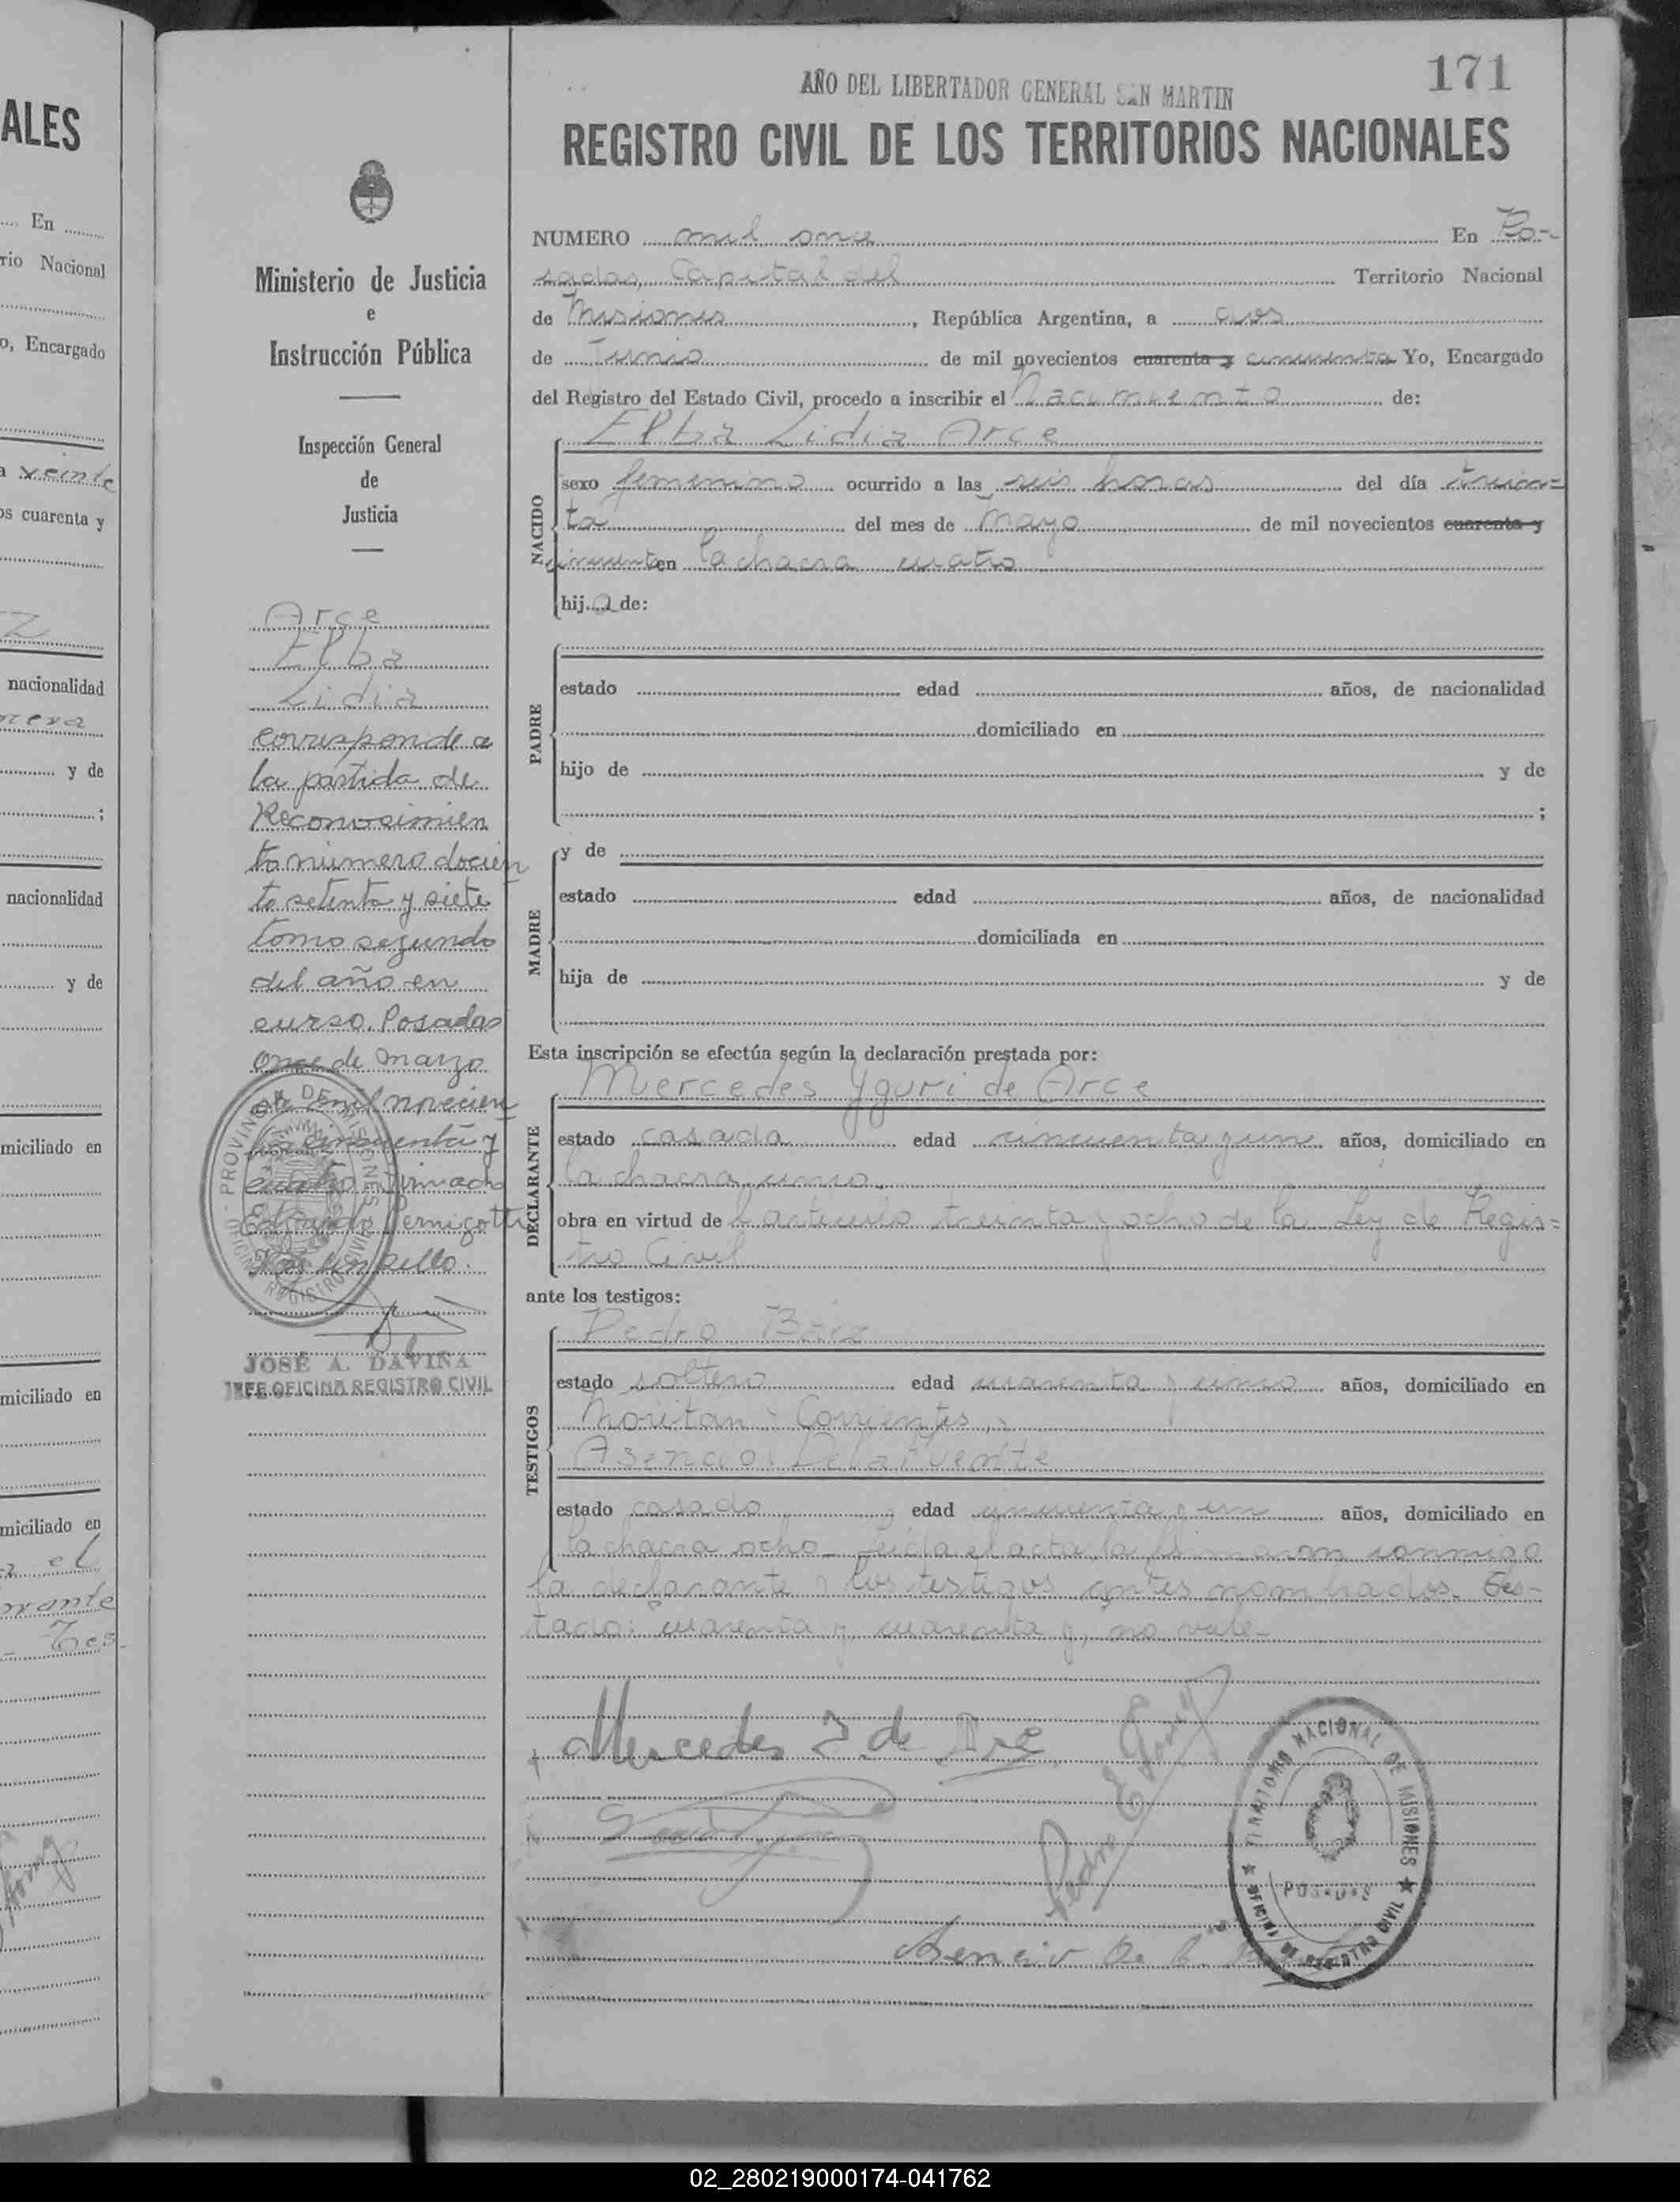 ALES
En
rio Nacional
o, Encargado
a veinte
os cuarenta y
nacionalidad
y de
;
nacionalidad
y de
miciliado en
miciliado en
miciliado en
el
Tes
171
AÑO DEL LIBERTADOR GENERAL SAN MARTIN
REGISTRO CIVIL DE LOS TERRITORIOS NACIONALES
Ministerio de Justicia
e
Instrucción Pública
Inspección General
de
Justicia
Arce
Elba
Lidia
corresponde a
la partida de
Reconocimien
to número docien
to setenta y siete
tomo segundo
del año en
curso. Posadas
once de marzo
de mil novecien
tos cincuenta y
cuatro. Firmado
Eduardo Pernigotti
Hay un sello.
PROVINCIA DE MISIONES
OFICINA REGISTRO CIVIL
JOSÉ A. DAVIÑA
JEFE OFICINA REGISTRO CIVIL
NUMERO mil once En Po-
sadas, Capital del Territorio Nacional
de Misiones, República Argentina, a dos
de Junio de mil novecientos cuarenta y cincuenta Yo, Encargado
del Registro del Estado Civil, procedo a inscribir el Nacimiento de:
NACIDO
Elba Lidia Arce
sexo femenino ocurrido a las seis horas del día trein=
ta del mes de Mayo de mil novecientos cuarenta y
cincuenta en la chacra cuatro
hija de:
PADRE
estado edad años, de nacionalidad
domiciliado en
hijo de y de
;
MADRE
y de
estado edad años, de nacionalidad
domiciliada en
hija de y de
Esta inscripción se efectúa según la declaración prestada por:
DECLARANTE
Mercedes Yguri de Arce
estado casada edad cincuenta y un años, domiciliado en
la chacra
obra en virtud del artículo treinta y ocho de la Ley de Regis=
tro Civil
ante los testigos:
TESTIGOS
Pedro Báez
estado soltero edad cuarenta y cinco años, domiciliado en
Corrientes,
Asencio De la Fuente
estado casado edad cincuenta y un años, domiciliado en
la chacra ocho_ Leída el acta, la firmaron conmigo
la declarante y los testigos antes nombrados. Tes-
tado: cuarenta y cuarenta y, no vale-
Mercedes Y. de Arce
Pedro E
Asencio De l.
TERRITORIO NACIONAL DE MISIONES
POSADAS
OFICINA DE REGISTRO CIVIL
02_280219000174-041762